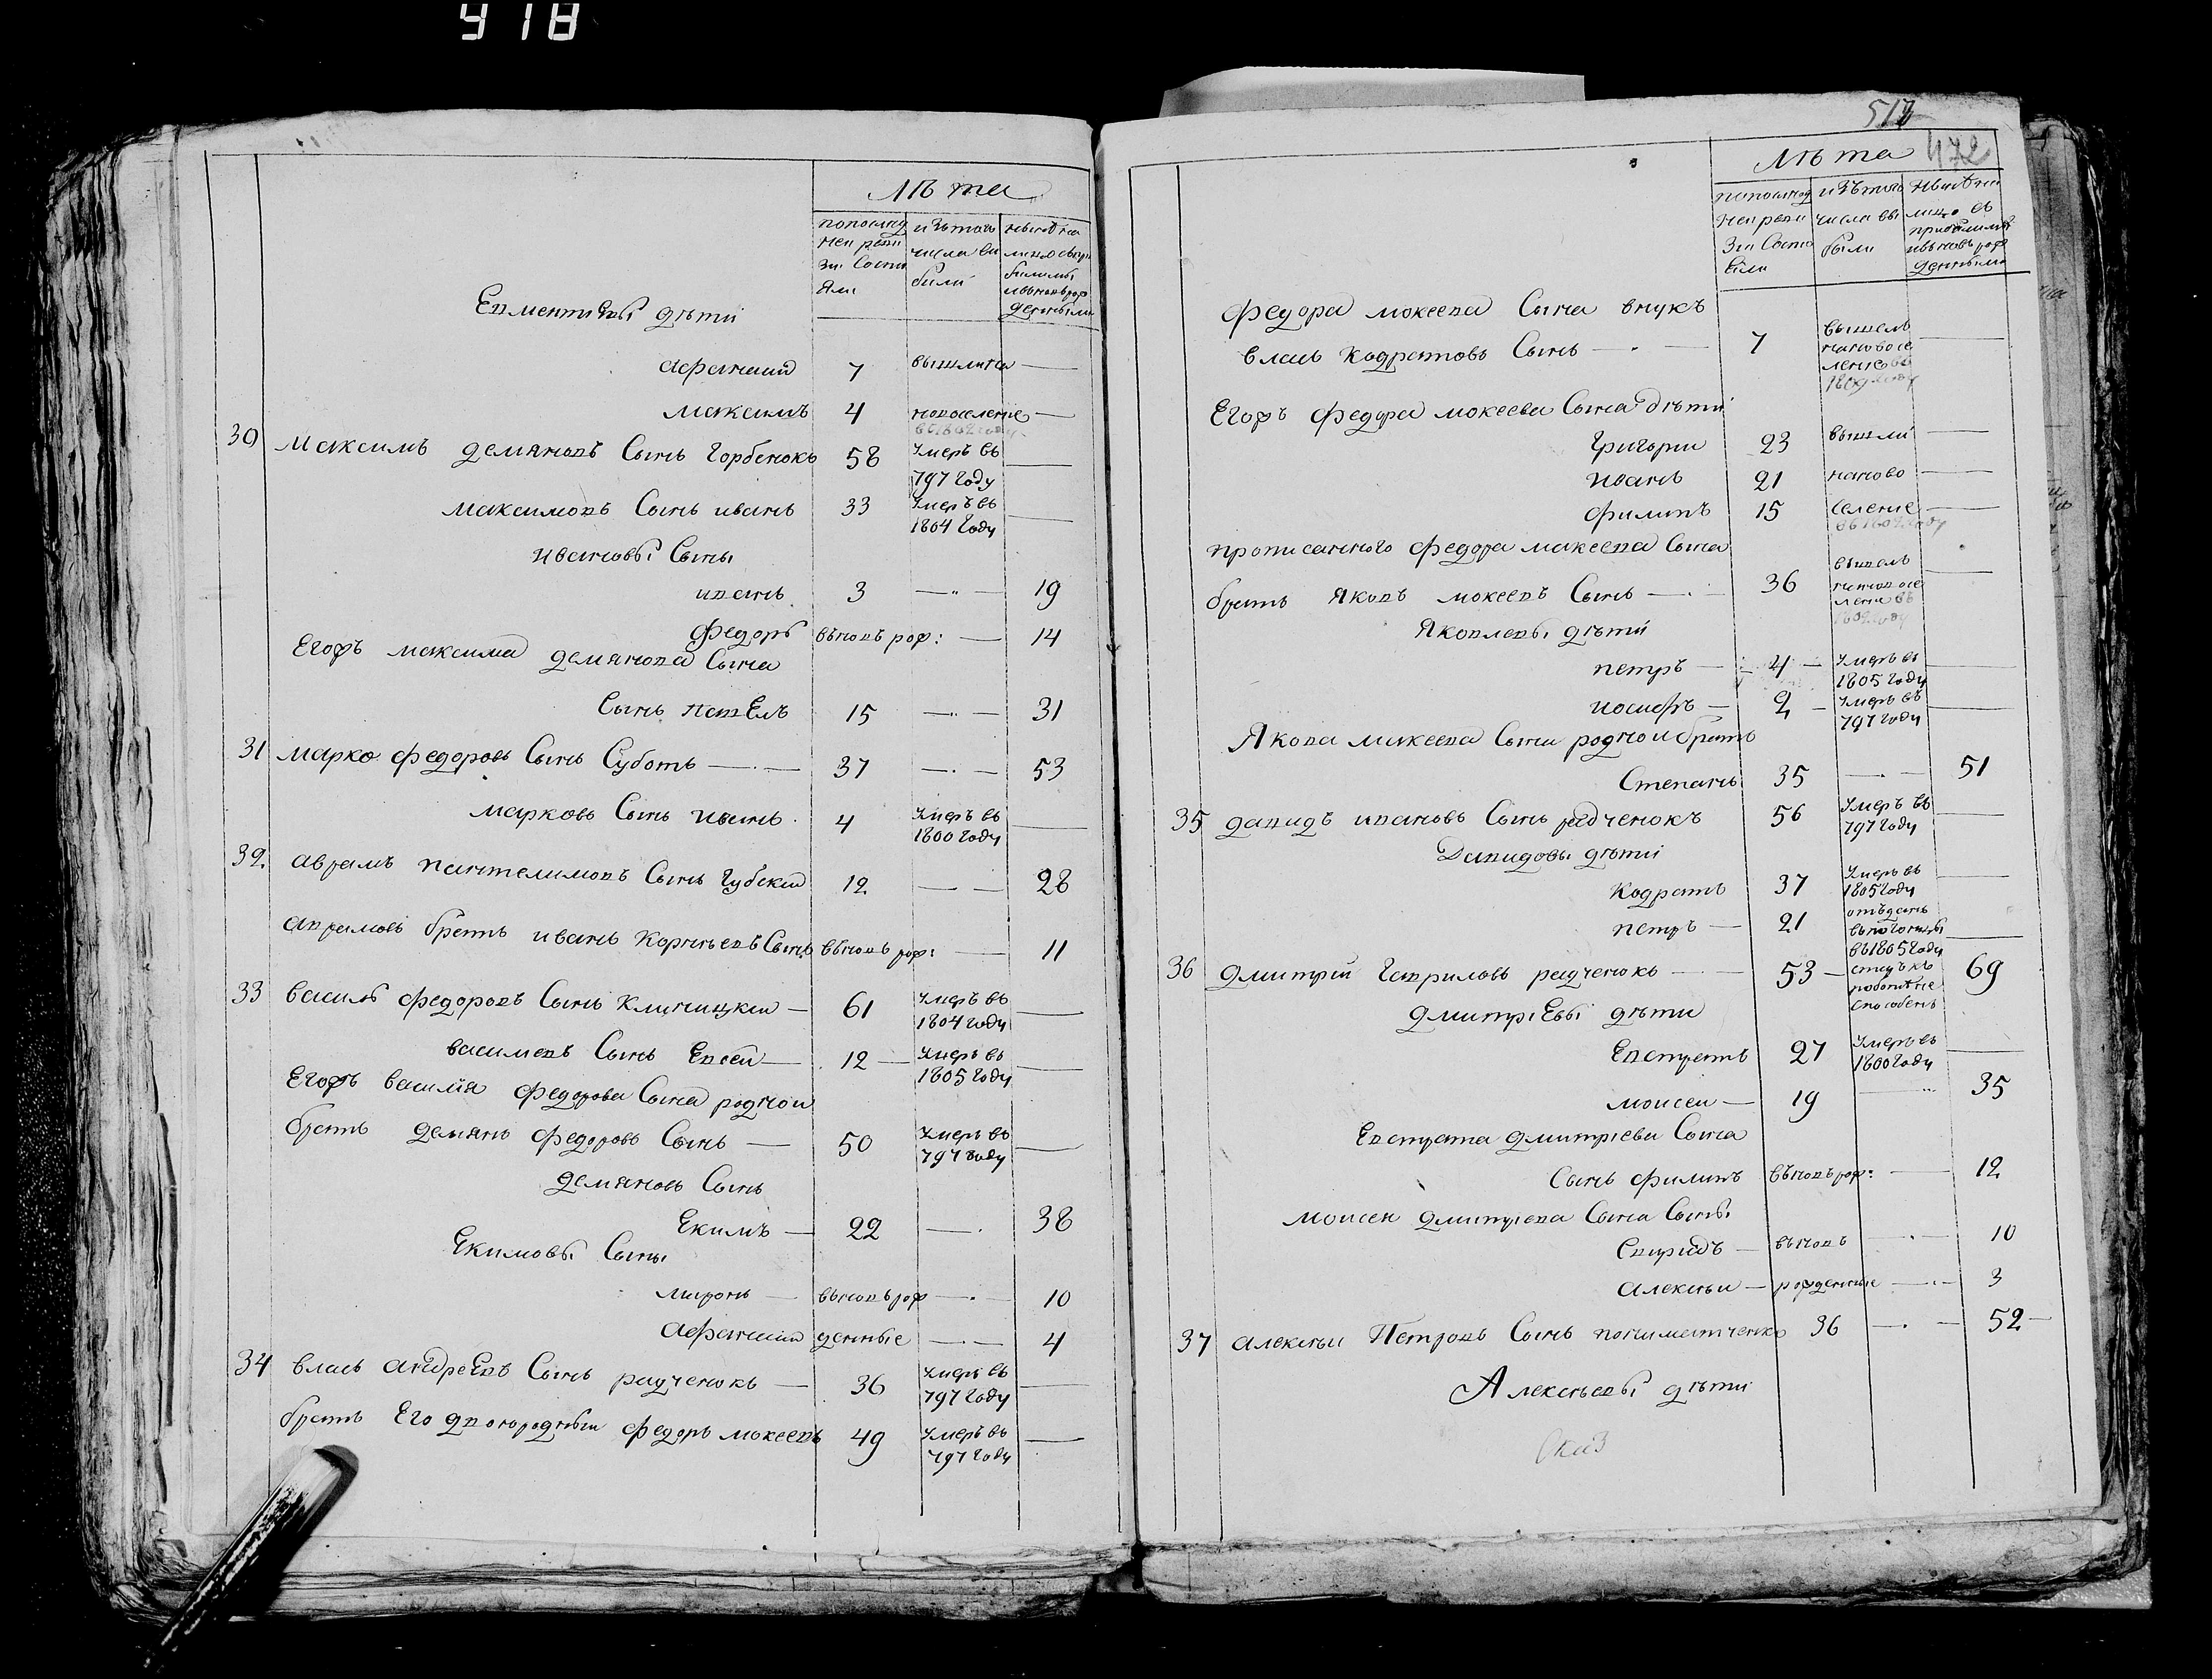 918
Лѣта
попослѣд ней реви зіи состо яли
изътого числа вы были
Епментиевы дѣти
Афанасий 7 вышли на —
Максимъ 4 новоселение — въ1802году
30 Максимъ Демяновъ Сынъ Горбенокъ 58 умеръ въ 797 году —
Максимовъ Сынъ иванъ 33 умеръ въ 1804 году —
ивановы Сыны
иванъ 3 — 19
Федоръ вѣновь рож: — 14
Егожъ максима демянова Сына
Сынъ павЕлъ 15 — 31
31 марко федоровъ Сынъ Суботъ — 37 — 53
марковъ Сынъ иванъ 4 умеръ въ 1800 году —
32 аврамъ пантелимовъ Сынъ Губский 12 — 28
аврамовъ братъ иванъ Корнѣевъ Сынъ вѣновь рож: — 11
33 василь федоровъ Сынъ Клиницкий — 61 умеръ въ 1804 году —
васильевъ Сынъ Евсей — 12 — умеръ въ 1805 году —
Егожъ василия федорова Сына родной
братъ демянъ федоровъ Сынъ — 50 умеръ въ 797 году —
демяновъ Сынъ
Екимъ — 22 — 38
Екимовы Сыны
миронъ — вѣновь рож — 10
Афанасий денные — 4
34 власъ андреЕвъ Сынъ радченокъ — 36 умеръ въ 797 году —
братъ Его двоюродный федоръ мокеевъ 49 умеръ въ 797 году —
517
472
Лѣта
попослѣд ней реви зіи состо яли
изътого числа вы были
нынѣ на лицо съ прибылыми ивновь рож денными
федора мокеева Сына внукъ
власъ Кодратовъ Сынъ — 7 вышелъ наново се ление въ 1802 году —
Егожъ федора мокеева Сына дѣти
Григорий 23 вышли —
иванъ 21 наново —
филипъ 15 селение — въ 1802 году
прописанного федора макеева Сына
братъ Яковъ мокеевъ Сынъ — 36 вышелъ наново се ление въ 1802 году —
Яковлевы дѣти
петръ — 4 — умеръ въ 1805 году —
иосифъ — 2 — умеръ въ 797 году —
Якова макеева Сына родной братъ
Степанъ 35 — 51
35 давидъ ивановъ Сынъ радченокъ 56 умеръ въ 797 году —
Давидовы дѣти
Кодратъ 37 умеръ въ 1805 году —
петръ — 21 отъданъ въпогонцы въ1805 году —
36 Дмитрий Гавриловъ радченокъ — 53 — работѣ не способенъ 69
Дмитриевы дѣти
Евстратъ 27 умеръ въ 1800 году —
моисей — 19 — 35
Евстрата дмитриева Сына
Сынъ филипъ вѣновь рож: — 12
Моисея дмитриева Сына Сыны
Спиридъ — вѣновь — 10
алексѣй — рожденные — 3
37 алексѣй Петровъ Сынъ 36 — 52 —
Алексѣевы дѣти